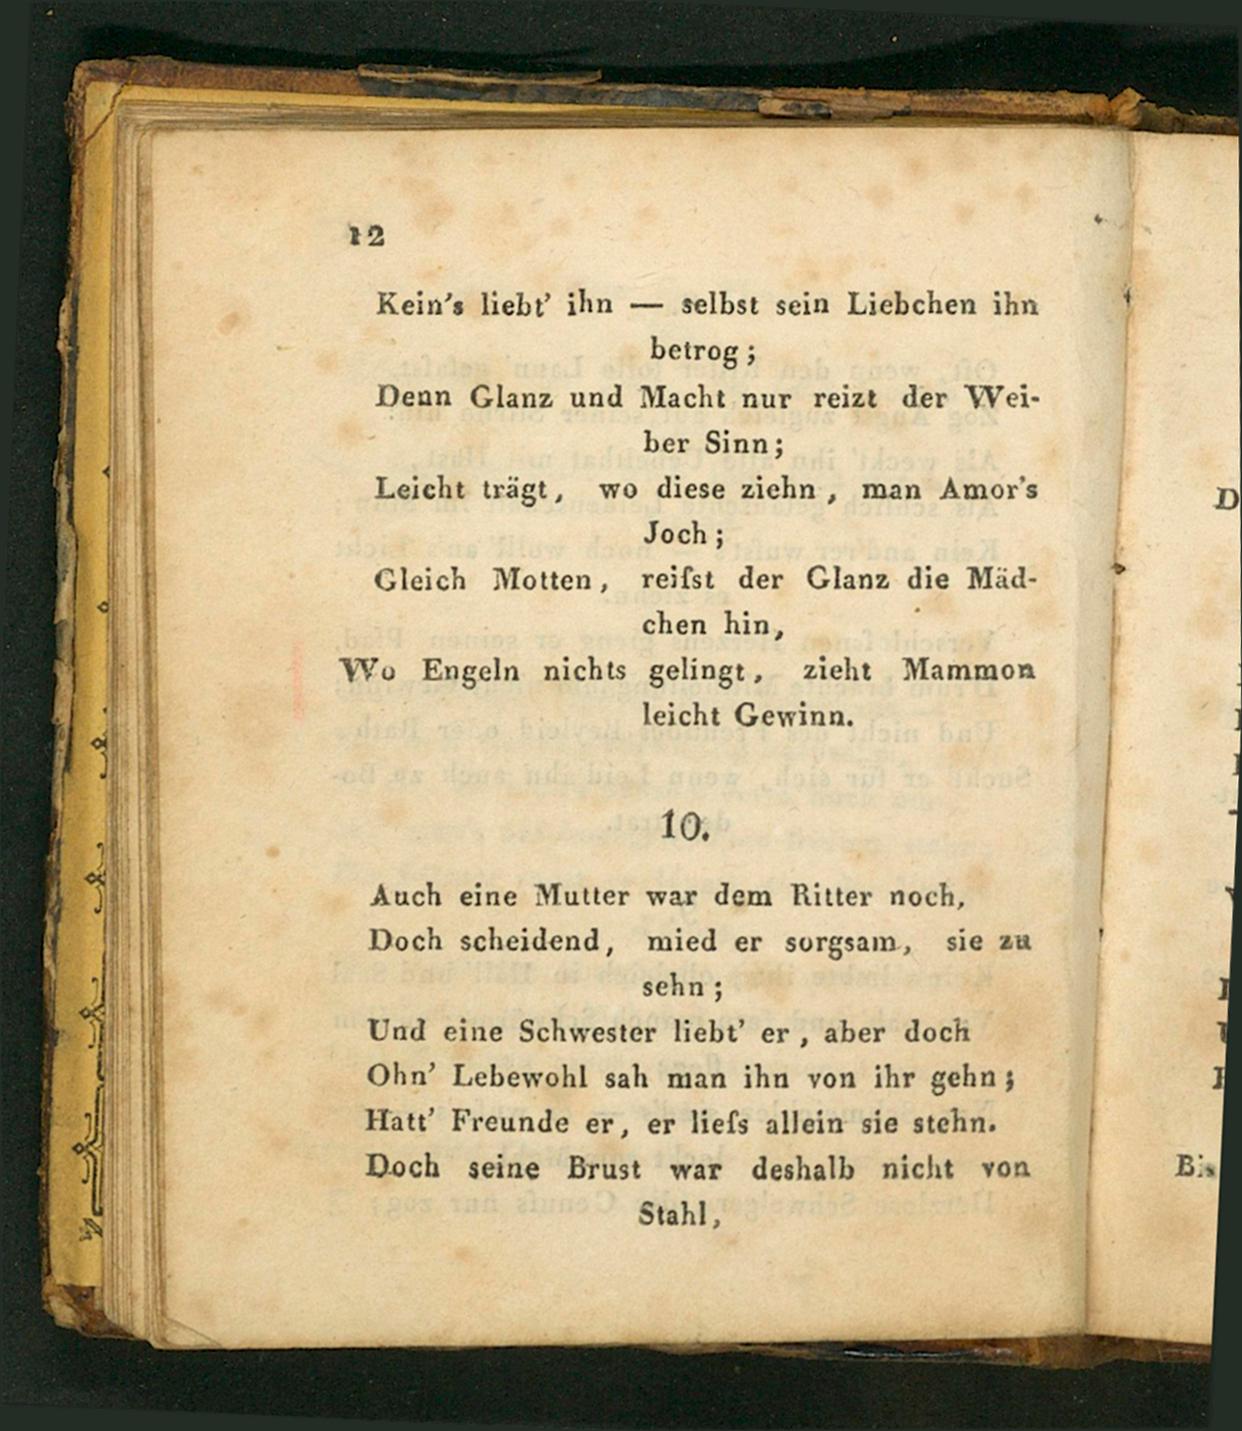 12
Kein's liebt' ihn — selbst sein Liebchen ihn
betrog;
Denn Glanz und Macht nur reizt der Wei-
ber Sinn;
Leicht trägt, wo diese ziehn, man Amor's
Joch;
Gleich Motten, reiſst der Glanz die Mäd-
chen hin,
Wo Engeln nichts gelingt, zieht Mammon
leicht Gewinn.
10.
Auch eine Mutter war dem Ritter noch,
Doch scheidend, mied er sorgsam, sie zu
sehn;
Und eine Schwester liebt' er, aber doch
Ohn' Lebewohl sah man ihn von ihr gehn;
Hatt' Freunde er, er lieſs allein sie stehn.
Doch seine Brust war deshalb nicht von
Stahl,